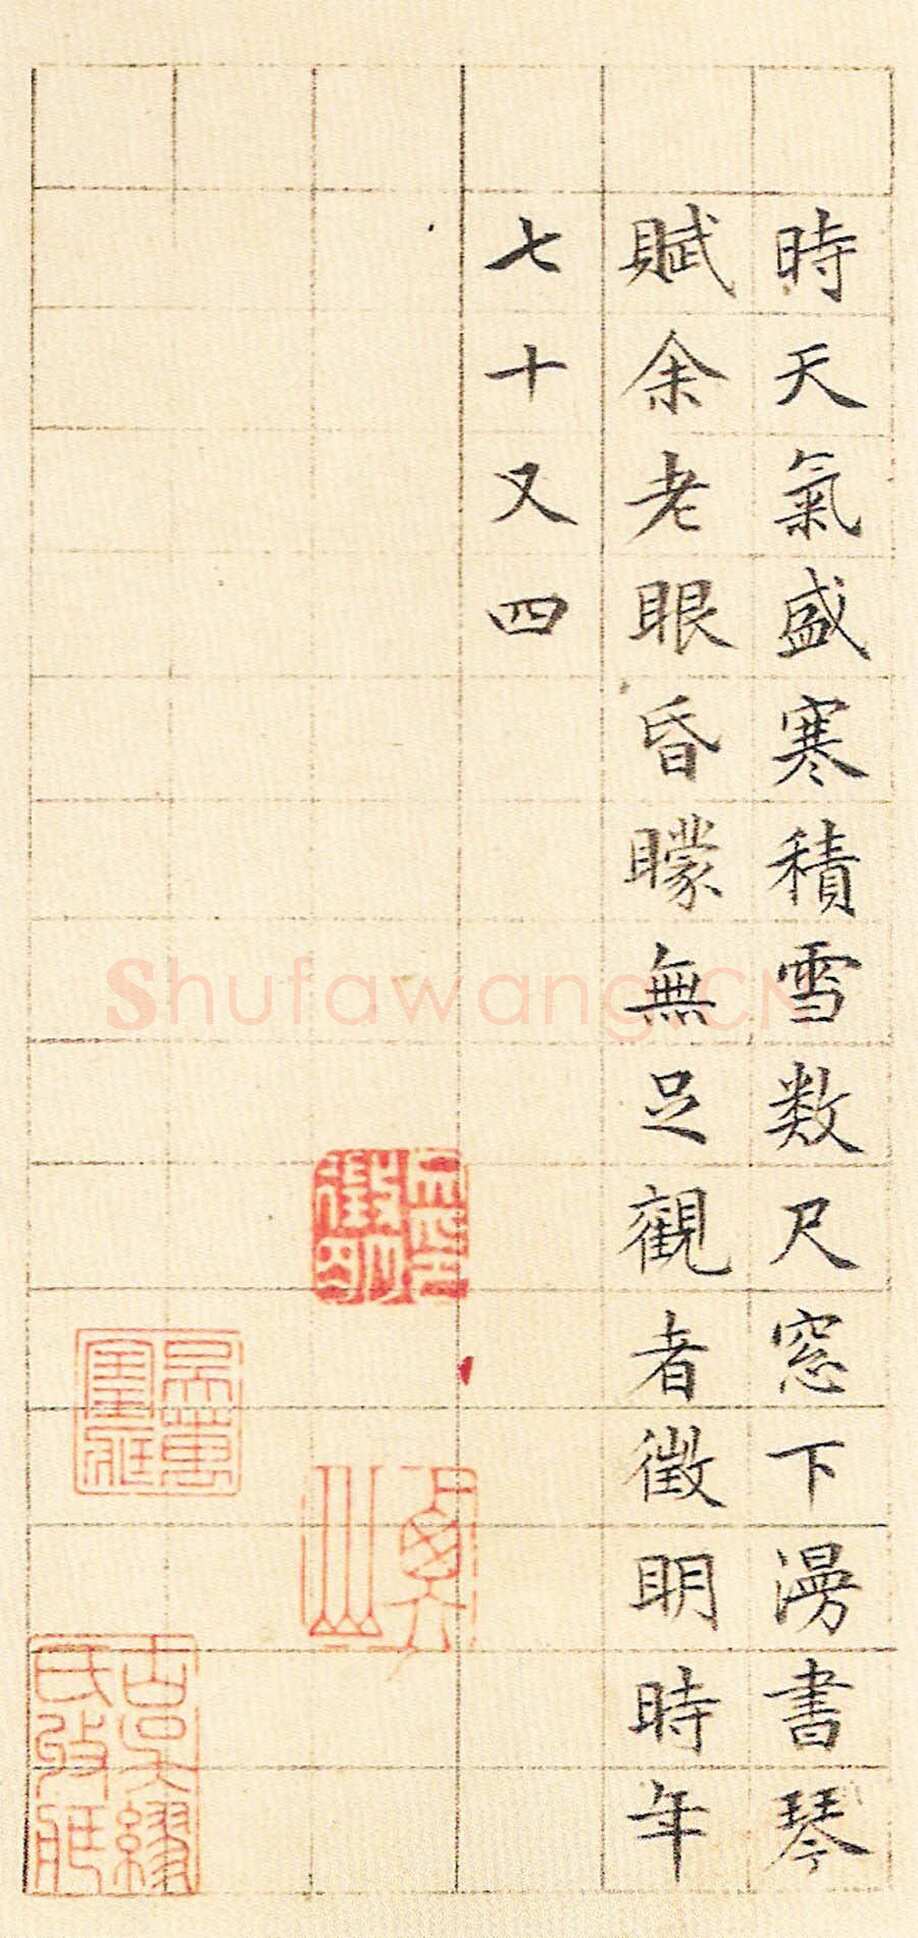 時天氣盛寒積雪数尺窓下漫書琴
賦余老眼昏矇無足觀者徵明時年
七十又四
Shufawang.CN